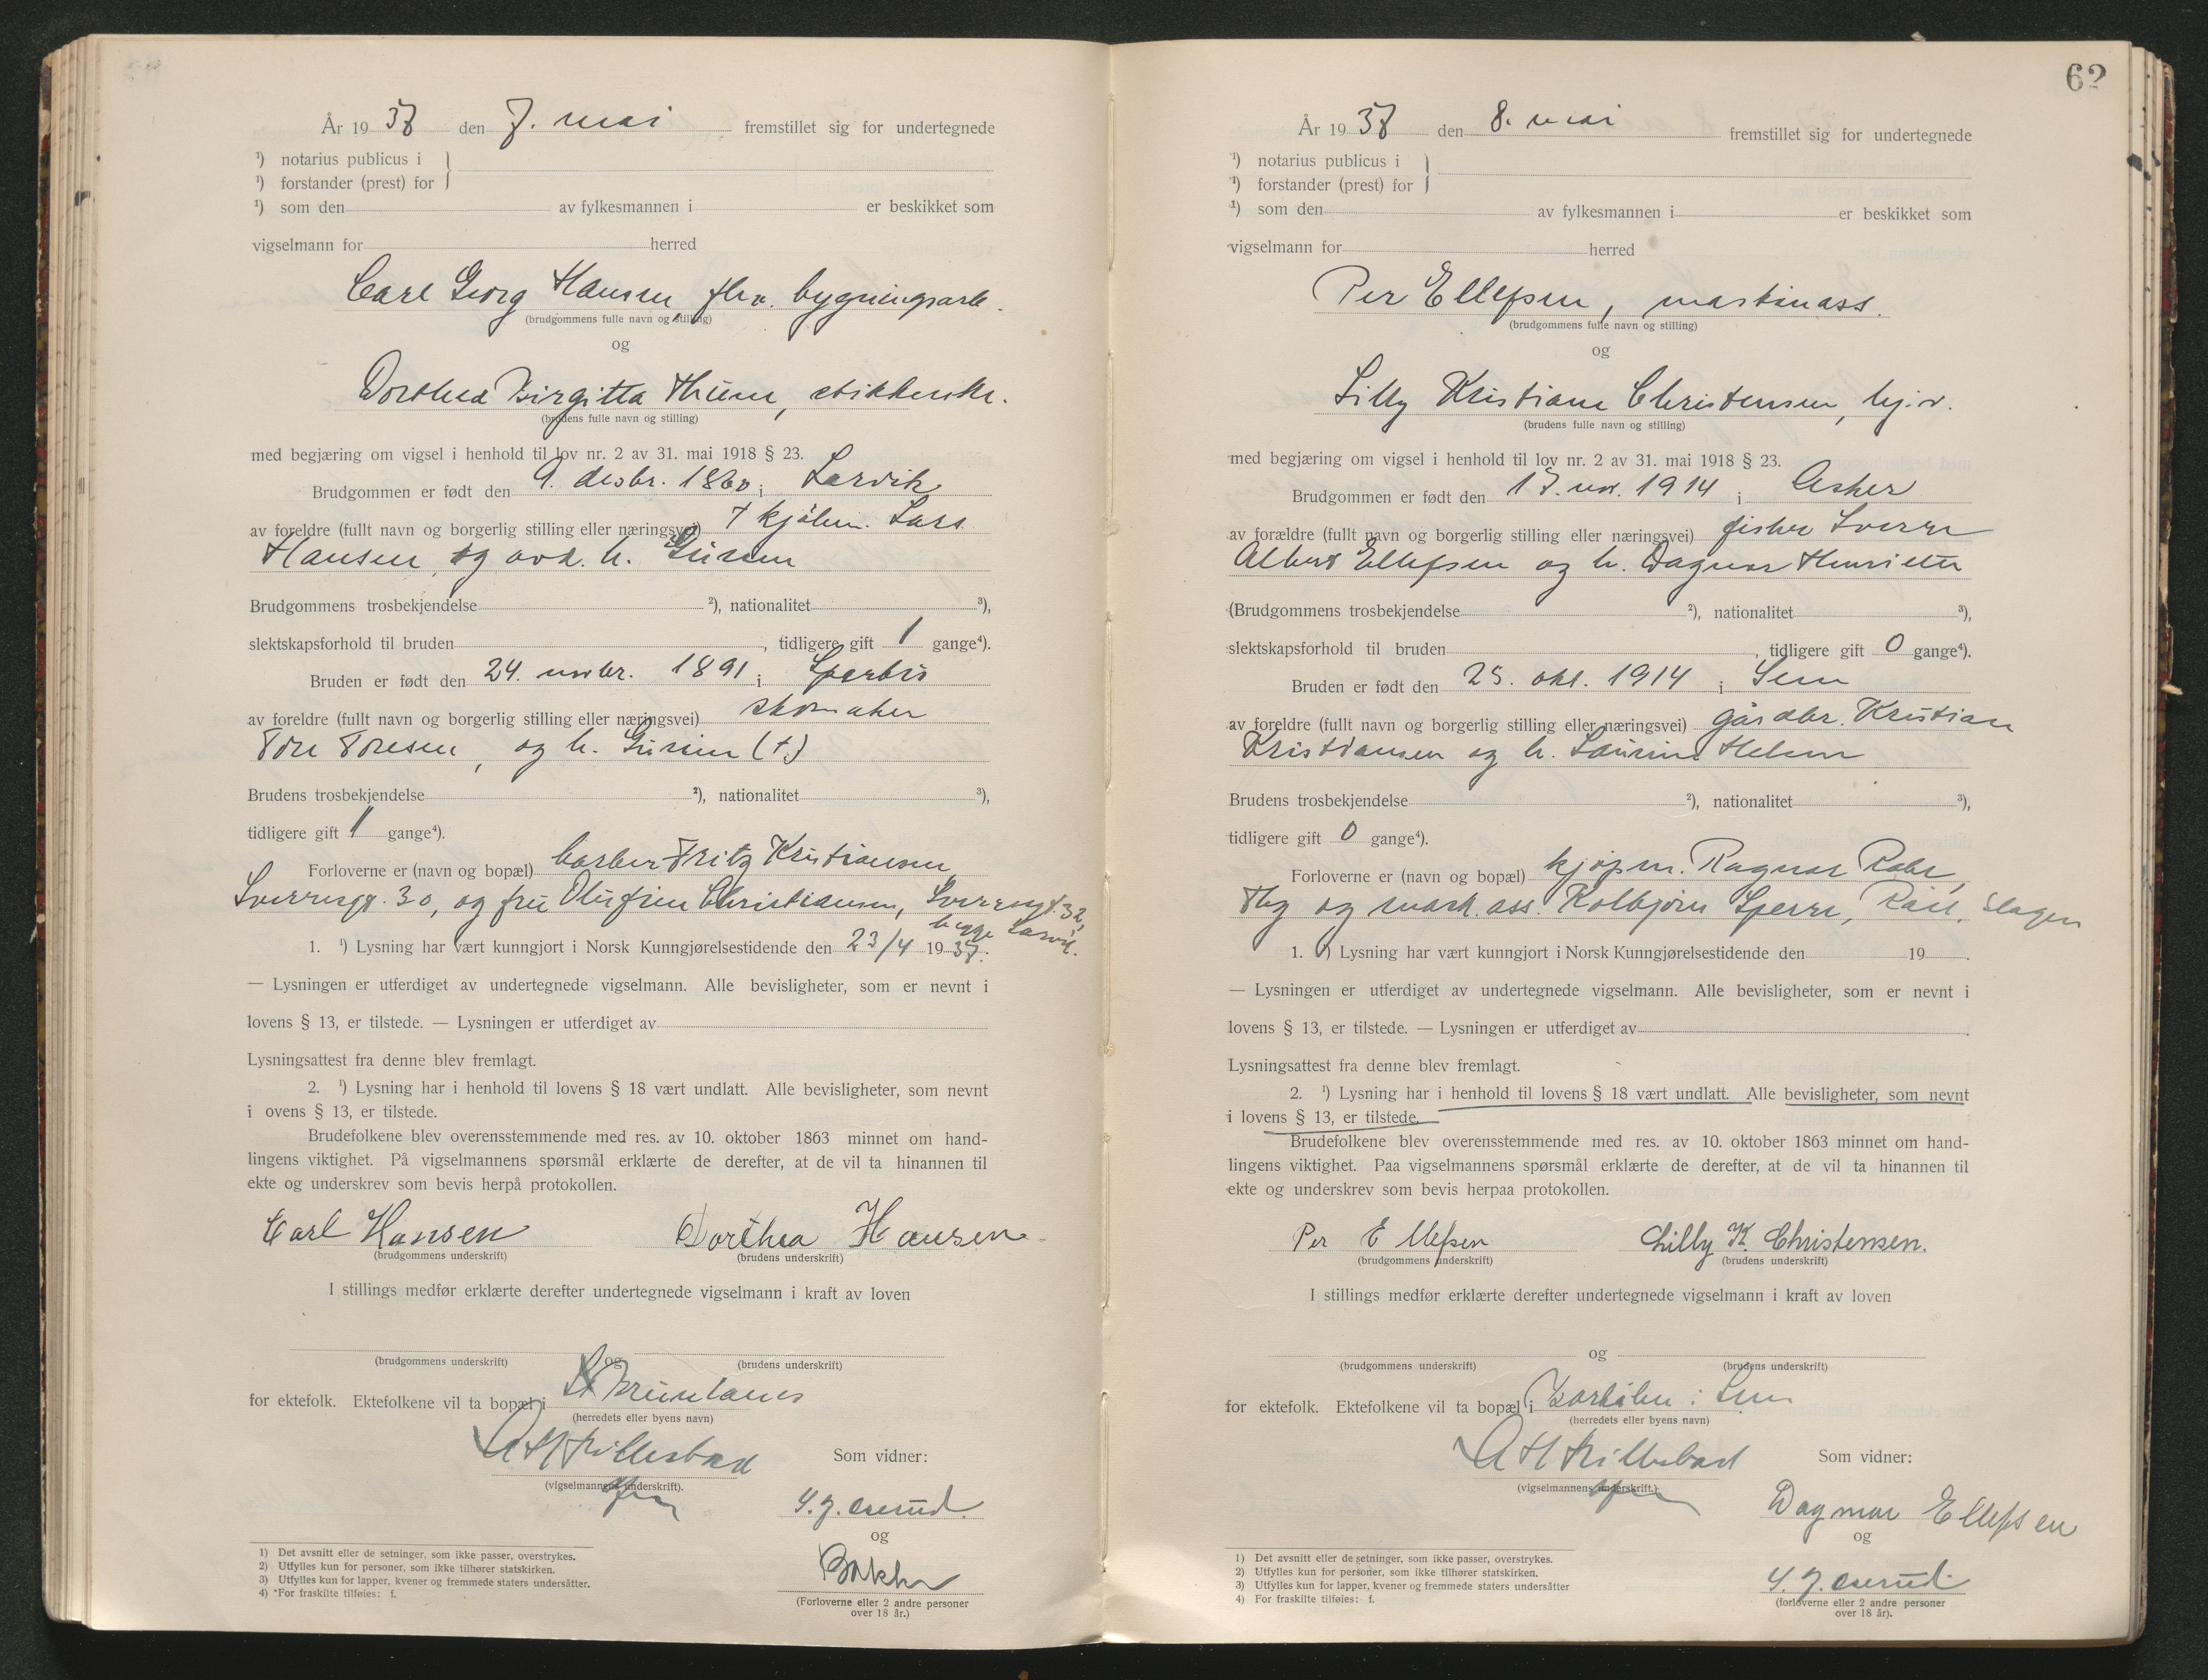 År 19 37 den 7. mai fremstillet sig for undertegnede
¹) notarius publicus i
¹) forstander (prest) for
¹) som den av fylkesmannen i er beskikket som
vigselmann for herred
Carl Georg Hansen, fhv. bygningsarb.
(brudgommens fulle navn og stilling)
og
Dorthea Birgitta Hansen,
(brudens fulle navn og stilling)
med begjæring om vigsel i henhold til lov nr. 2 av 31. mai 1918 § 23.
Brudgommen er født den 9. desbr. 1860 i Larvik
av foreldre (fullt navn og borgerlig stilling eller næringsvei) † Lars
Hansen, og avd. h. Gurine
Brudgommens trosbekjendelse ²), nationalitet ³),
slektskapsforhold til bruden , tidligere gift 1 gange⁴).
Bruden er født den 24. novbr. 1891 i
av foreldre (fullt navn og borgerlig stilling eller næringsvei) skomaker
Tore Toresen, og h. (†)
Brudens trosbekjendelse ²), nationalitet ³),
tidligere gift 1 gange⁴).
Forloverne er (navn og bopæl) barber Fritz Kristiansen,
Sverresgt. 30, og fru Olufine Christiansen, Sverresgt. 32,
begge Larvik.
1. ¹) Lysning har vært kunngjort i Norsk Kunngjørelsestidende den 23/4 19 37.
— Lysningen er utferdiget av undertegnede vigselmann. Alle bevisligheter, som er nevnt i
lovens § 13, er tilstede. — Lysningen er utferdiget av
Lysningsattest fra denne blev fremlagt.
2. ¹) Lysning har i henhold til lovens § 18 vært undlatt. Alle bevisligheter, som nevnt
i ovens § 13, er tilstede.
Brudefolkene blev overensstemmende med res. av 10. oktober 1863 minnet om hand-
lingens viktighet. På vigselmannens spørsmål erklærte de derefter, at de vil ta hinannen til
ekte og underskrev som bevis herpå protokollen.
Carl Hansen Dorthea Hansen
(brudgommens underskrift) (brudens underskrift)
I stillings medfør erklærte derefter undertegnede vigselmann i kraft av loven
og
(brudgommens underskrift) (brudens underskrift)
for ektefolk. Ektefolkene vil ta bopæl i Brunlanes
(herredets eller byens navn)
Som vidner:
(vigselmannens underskrift).
og
(Forloverne eller 2 andre personer
over 18 år.)
1) Det avsnitt eller de setninger, som ikke passer, overstrykes.
2) Utfylles kun for personer, som ikke tilhører statskirken.
3) Utfylles kun for lapper, kvener og fremmede staters undersåtter.
4) *For fraskilte tilføies: f.
62
År 19 37 den 8. mai fremstillet sig for undertegnede
¹) notarius publicus i
¹) forstander (prest) for
¹) som den av fylkesmannen i er beskikket som
vigselmann for herred
Per Ellefsen, maskinass.
(brudgommens fulle navn og stilling)
og
Lilly Kristiane Christensen, hj.v.
(brudens fulle navn og stilling)
med begjæring om vigsel i henhold til lov nr. 2 av 31. mai 1918 § 23.
Brudgommen er født den 17. nov. 1914 i Asker
av forældre (fullt navn og borgerlig stilling eller næringsvei) fisker Sverre
Albert Ellefsen og h. Dagmar Henriette
(Brudgommens trosbekjendelse ²), nationalitet ³),
slektskapsforhold til bruden , tidligere gift 0 gange⁴).
Bruden er født den 25. okt. 1914 i Sem
av foreldre (fullt navn og borgerlig stilling eller næringsvei) gårdbr. Kristian
Kristiansen og h. Laurine Helene
Brudens trosbekjendelse ²), nationalitet ³),
tidligere gift 0 gange⁴).
Forloverne er (navn og bopæl) kjøpm. Ragnar
Tbg og mask.ass. Kolbjørn Sperre, Råel, Slagen
1. ¹) Lysning har vært kunngjort i Norsk Kunngjørelsestidende den 19 .
— Lysningen er utferdiget av undertegnede vigselmann. Alle bevisligheter, som er nevnt i
lovens § 13, er tilstede. — Lysningen er utferdiget av .
Lysningsattest fra denne blev fremlagt.
2. ¹) Lysning har i henhold til lovens § 18 vært undlatt. Alle bevisligheter, som nevnt
i lovens § 13, er tilstede.
Brudefolkene blev overensstemmende med res. av 10. oktober 1863 minnet om hand-
lingens viktighet. Paa vigselmannens spørsmål erklærte de derefter, at de vil ta hinannen til
ekte og underskrev som bevis herpaa protokollen.
Per Ellefsen Lilly K. Christensen.
(brudgommens underskrift) (brudens underskrift)
I stillings medfør erklærte derefter undertegnede vigselmann i kraft av loven
og
(brudgommens underskrift) (brudens underskrift)
for ektefolk. Ektefolkene vil ta bopæl i Barkåker i Sem
(herredets eller byens navn)
Som vidner:
(vigselmannens underskrift.)
Dagmar Ellefsen
og
(forloverne eller 2 andre personer
over 18 år).
1) Det avsnitt eller de setninger, som ikke passer, overstrykes.
2) Utfylles kun for personer, som ikke tilhører statskirken.
3) Utfylles kun for lapper, kvener og fremmede staters undersåtter
4) For fraskilte tilføies: f.